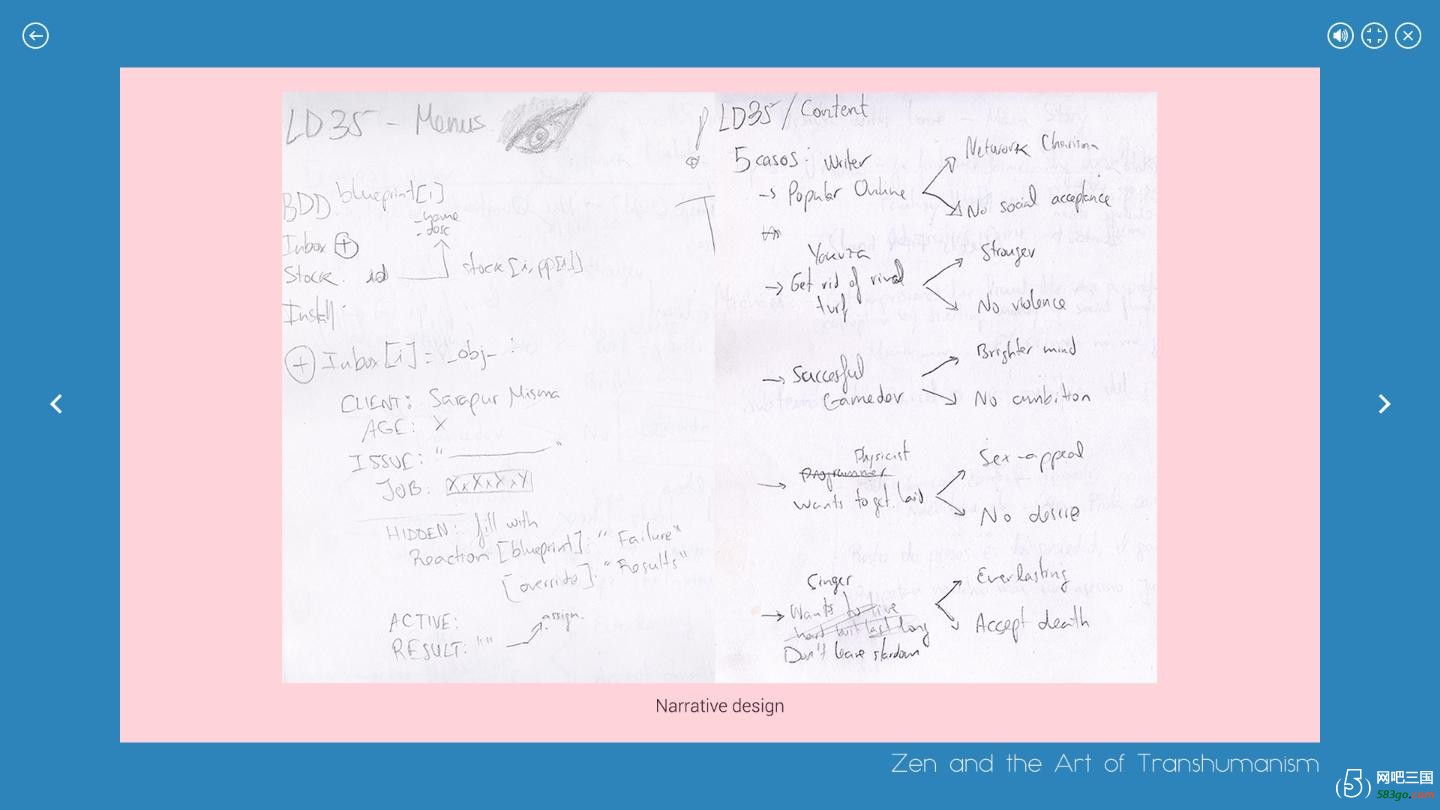 LD35 - Menus
BDD blueprint[i]
- name
- desc
Inbox +
Stock id stock[i, pp[i]]
Install:
+ Inbox[i] = _obj_ :
CLIENT: Sarapur Misma
AGE: X
ISSUE: "________"
JOB: XXXXXX
HIDDEN: fill with
Reaction [blueprint]: "Failure"
[override]: "Results"
ACTIVE:
assign.
RESULT: ""
LD35 / Content
5 casos: Writer
→ Popular Online
Network Charisma
No social acceptance
Yakuza
→ Get rid of rival
turf
Stronger
No violence
→ Succesful
Gamedev
Brighter mind
No ambition
Physicist
→ Programmer
wants to get laid
Sex-appeal
No desire
Singer
→ Wants to live
hard but last long
Don't leave stardom
Everlasting
Accept death
Narrative design
Zen and the Art of Transhumanism
(5) 网吧三国
583go.com